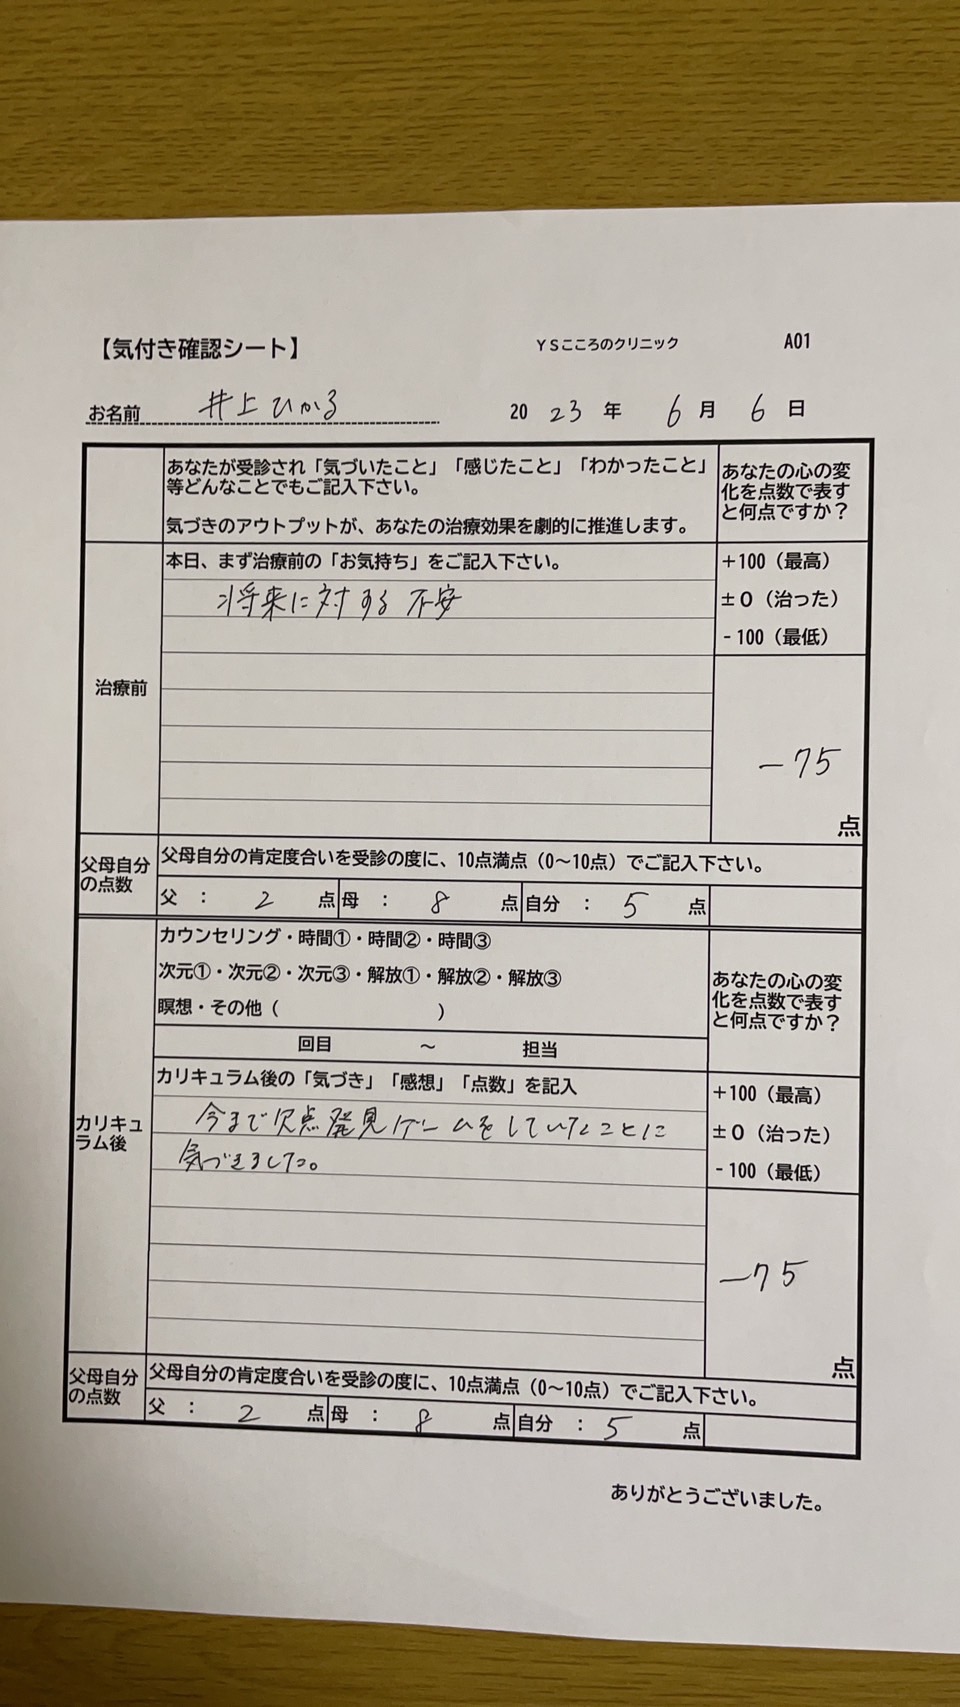 【気付き確認シート】 YSこころのクリニック A01
お名前 井上ひかる 2023年 6月 6日
あなたが受診され「気づいたこと」「感じたこと」「わかったこと」
等どんなことでもご記入下さい。
気づきのアウトプットが、あなたの治療効果を劇的に推進します。
あなたの心の変
化を点数で表す
と何点ですか？
治療前
本日、まず治療前の「お気持ち」をご記入下さい。
将来に対する不安
+100（最高）
±0（治った）
-100（最低）
-75
点
父母自分
の点数
父母自分の肯定度合いを受診の度に、10点満点（0～10点）でご記入下さい。
父 ： 2 点 母 ： 8 点 自分 ： 5 点
カリキュ
ラム後
カウンセリング・時間①・時間②・時間③
次元①・次元②・次元③・解放①・解放②・解放③
瞑想・その他（ ）
回目 ～ 担当
あなたの心の変
化を点数で表す
と何点ですか？
カリキュラム後の「気づき」「感想」「点数」を記入
今まで欠点発見ゲームをしていたことに
気づきました。
+100（最高）
±0（治った）
-100（最低）
-75
点
父母自分
の点数
父母自分の肯定度合いを受診の度に、10点満点（0～10点）でご記入下さい。
父 ： 2 点 母 ： 8 点 自分 ： 5 点
ありがとうございました。